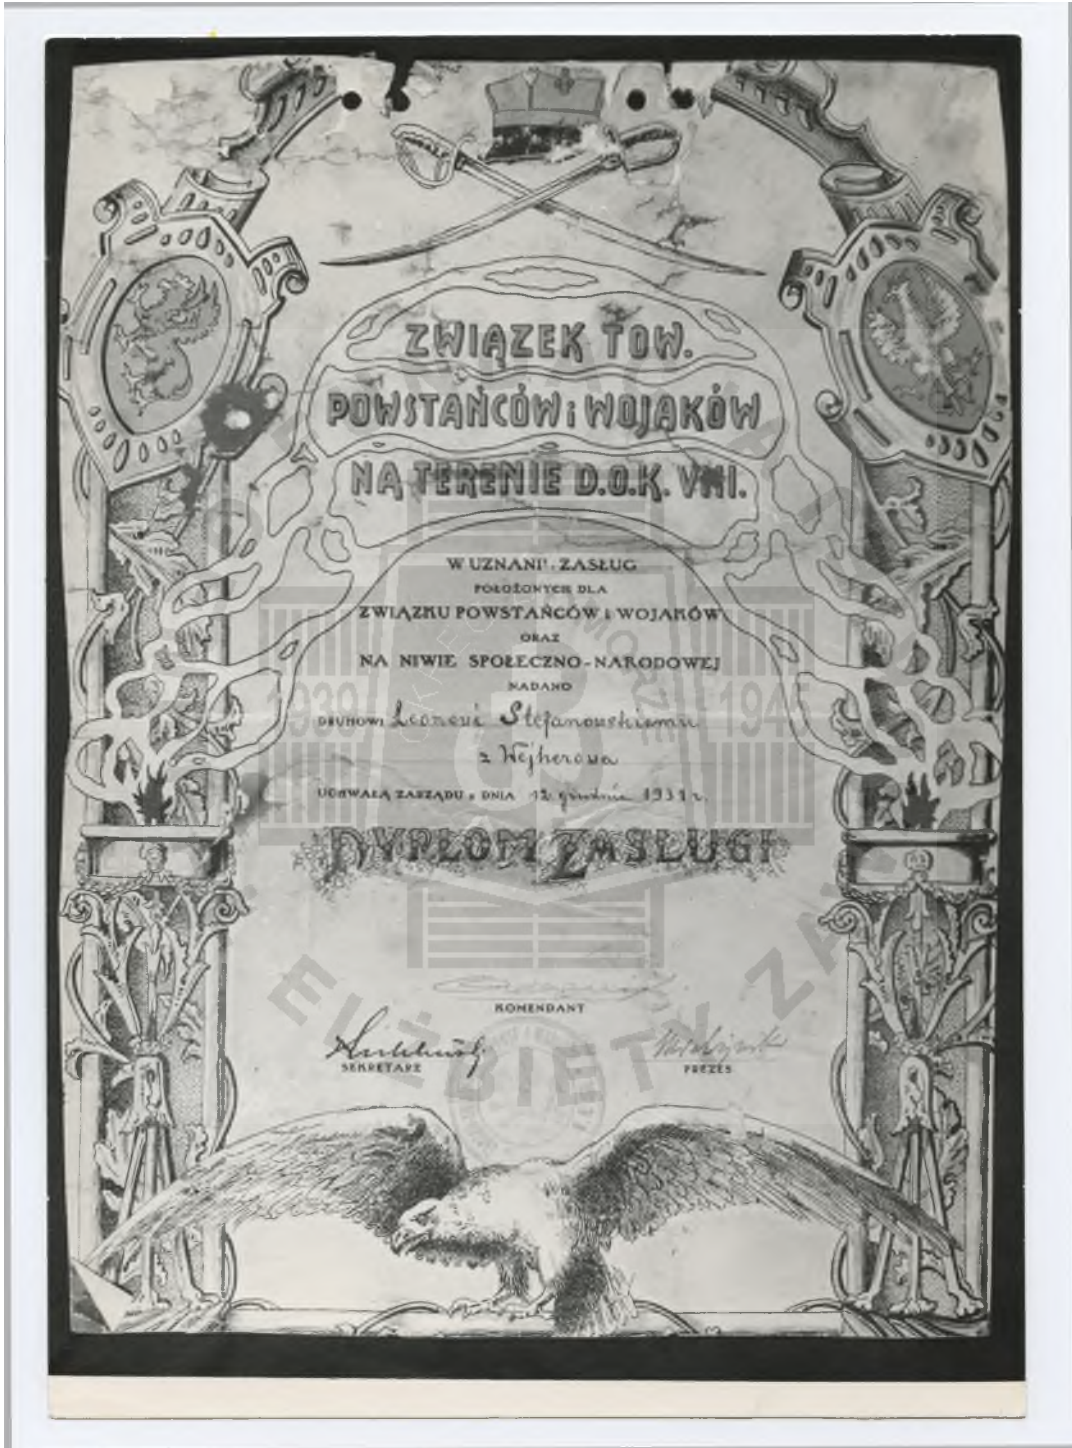 ZWIĄZEK TOW.
POWSTAŃCÓW i WOJAKÓW
NA TERENIE D.O.K. VIII.
W UZNANIU ZASŁUG
POŁOŻONYCH DLA
ZWIĄZKU POWSTAŃCÓW i WOJAKÓW
ORAZ
NA NIWIE SPOŁECZNO-NARODOWEJ
NADANO
DRUHOWI Leonowi Stefanowskiemu
z Wejherowa
UCHWAŁĄ ZARZĄDU z DNIA 12 grudnia 1931 r.
DYPLOM ZASŁUGI
KOMENDANT
SEKRETARZ
PREZES
1939
1945
POMORZE
ELŻBIETY